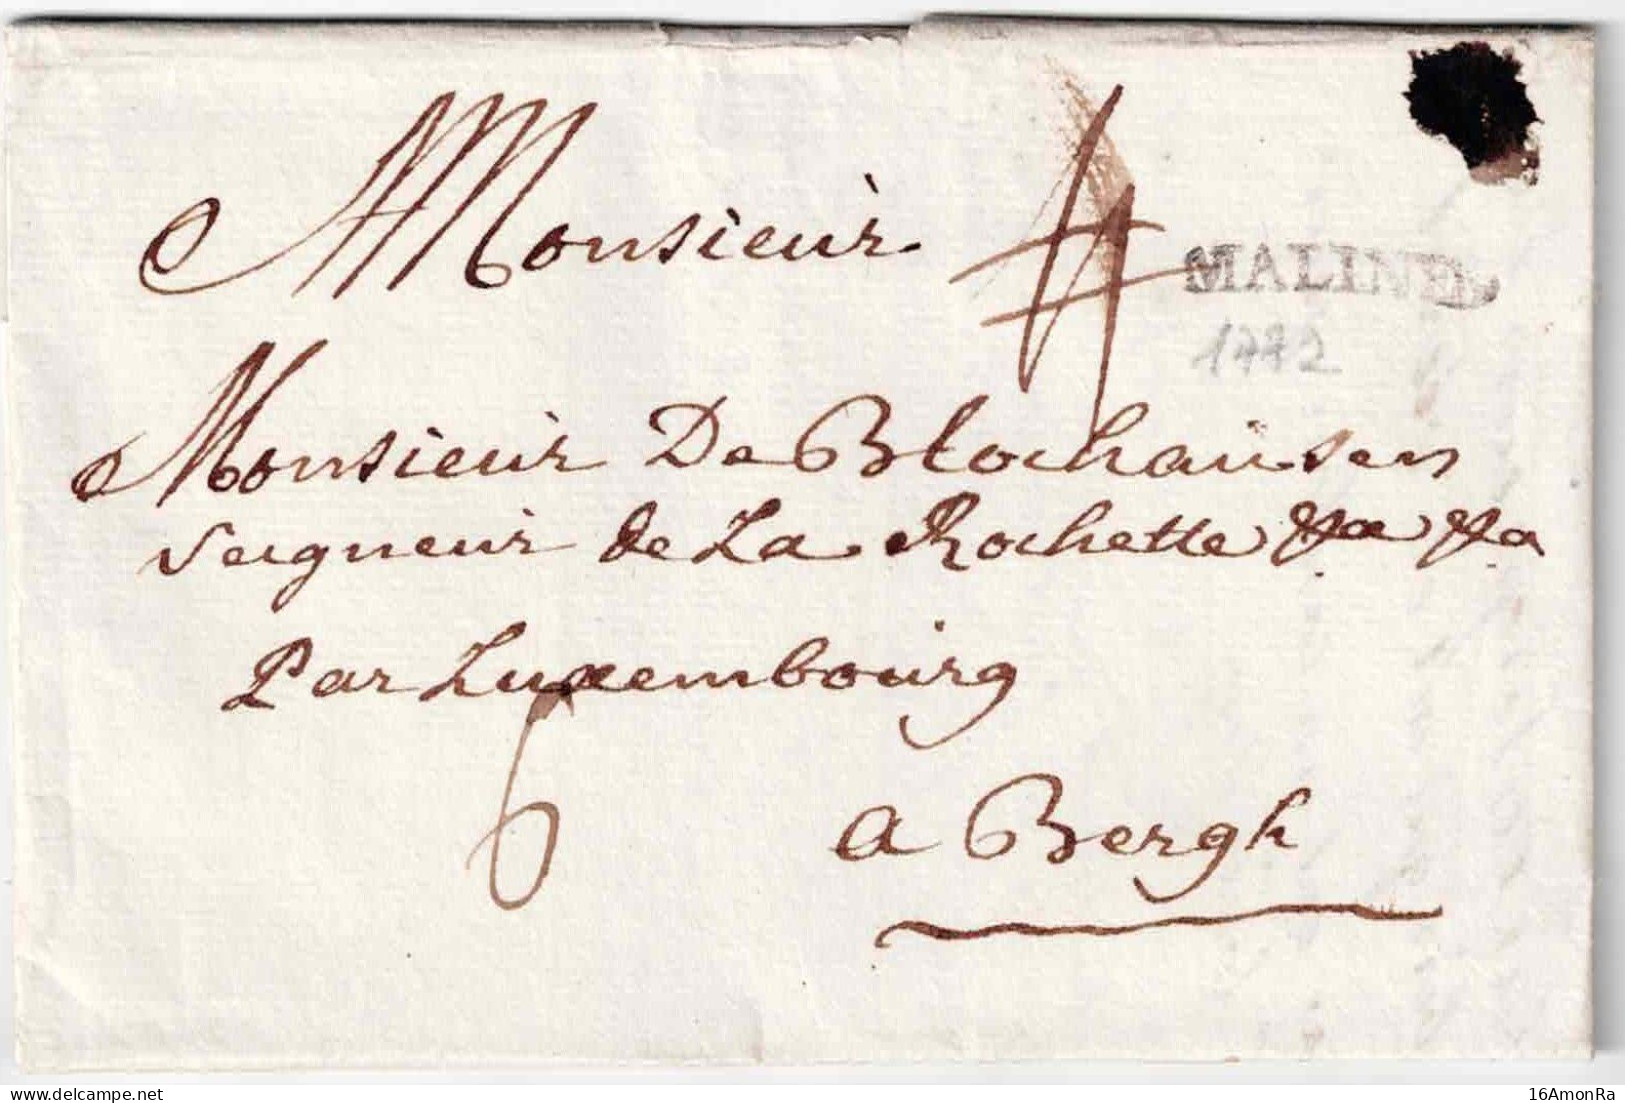 Monsieur
MALINES
Monsieur De Blochaüsen
Seigneur de La Rochette &a &a
Par Luxembourg
6
a Bergh
delcampe.net
16AmonRa